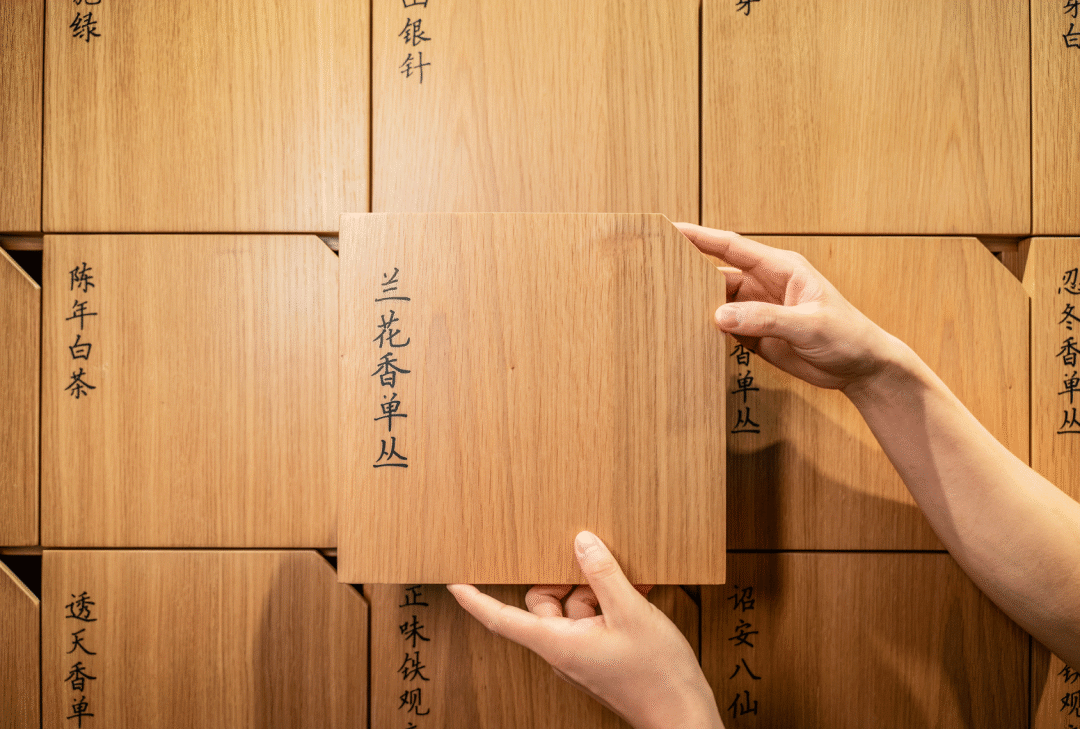 绿
银针
陈年白茶
兰花香单丛
香单丛
忍冬香单丛
透天香单
正味铁观
诏安八仙